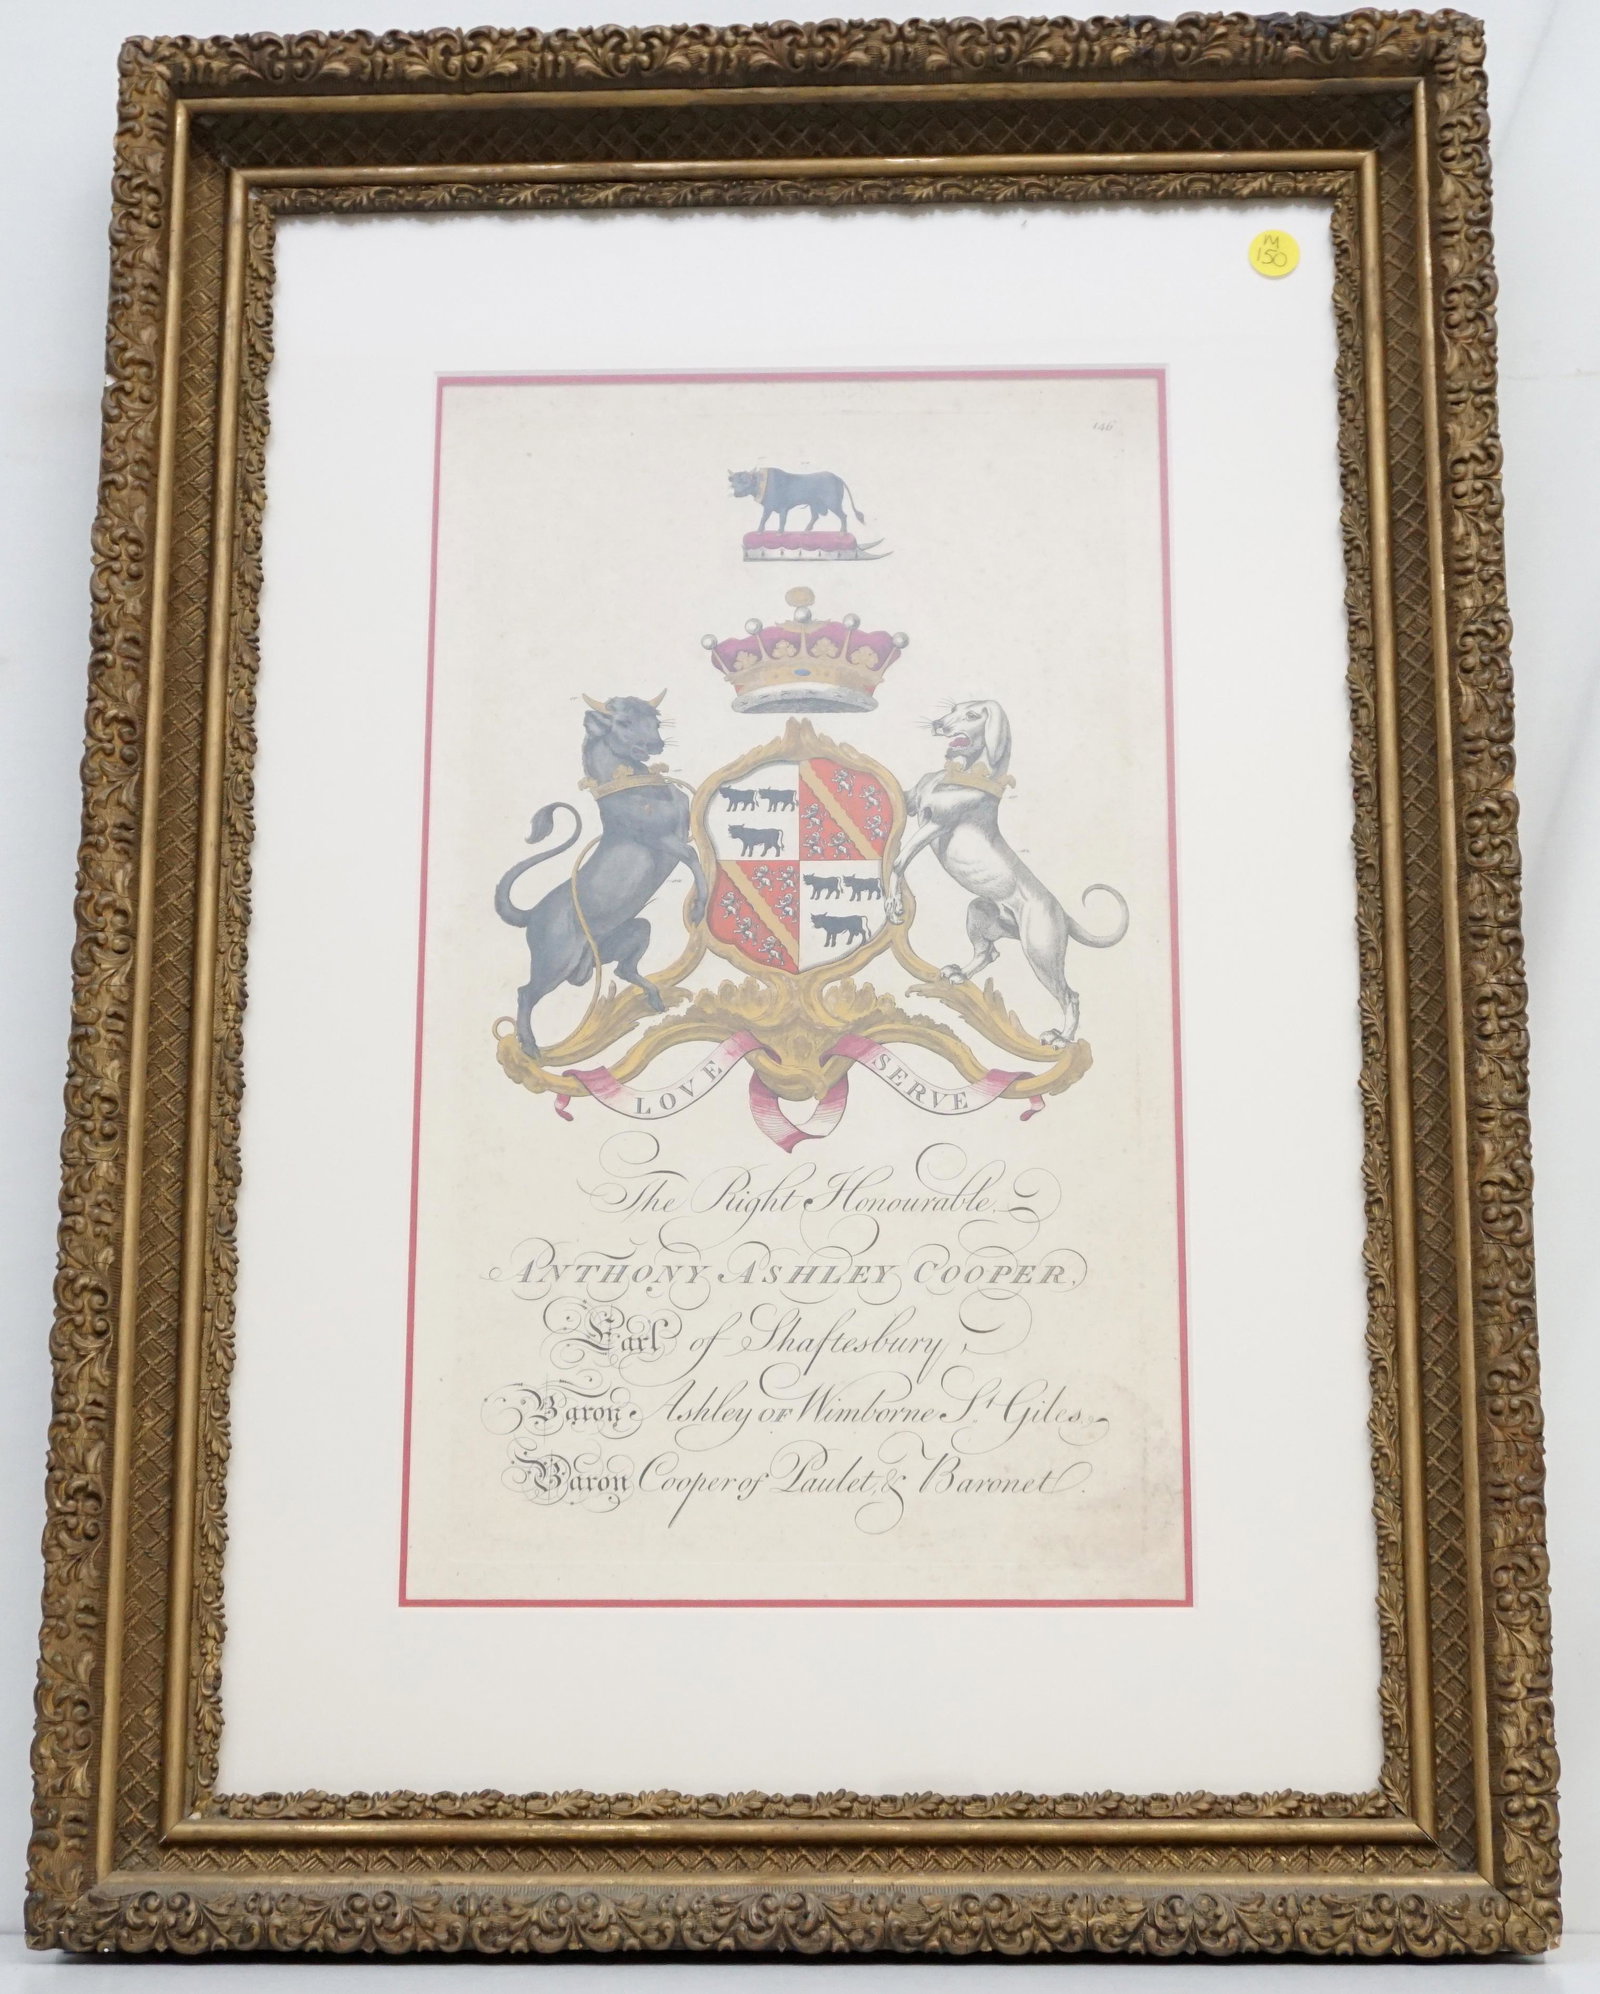 M
150
146
LOVE SERVE
The Right Honourable
ANTHONY ASHLEY COOPER,
Earl of Shaftesbury,
Baron Ashley OF Wimborne St Giles,
Baron Cooper of Paulet, & Baronet.